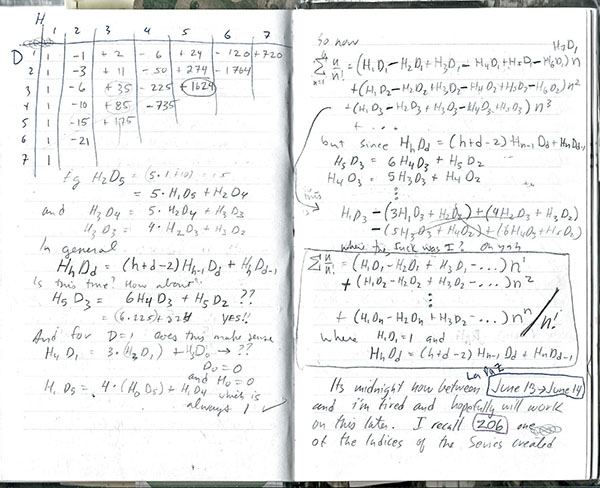 H
1 2 3 4 5 6 7
D 1 1 -1 +2 -6 +24 -120 +720
2 1 -3 +11 -50 +274 -1764
3 1 -6 +35 -225 +1624
4 1 -10 +85 -735
5 1 -15 +175
6 1 -21
7 1
Eg H2D5 =
= 5·H1D5 + H2D4
and H3D4 = 5·H2D4 + H3D3
H3D3 = 4·H2D3 + H3D2
In general
HhDd = (h+d-2)Hh-1Dd + HhDd-1
Is this true? How about
H5D3 = 6H4D3 + H5D2 ??
= (6·225)+274 YES!!
And for D=1 does this make sense
D0=0
and H0=0
H1D5 = 4·(H0D5) + H1D4 which is
always 1 ✓
So now
H7D1
but since HhDd = (h+d-2)Hh-1Dd + HhDd-1
H5D3 = 6H4D3 + H5D2
H4D3 = 5H3D3 + H4D2
H1D3 - (3H1D3 + H2D2) + (4H2D3 + H3D2)
- (5H3D3 + H4D2) + (6H4D3 + H5D2)
where the fuck was I? Oh yah
∑ n/n! = (H1D1 - H2D1 + H3D1 - ...) n¹
+ (H1D2 - H2D2 + H3D2 - ...) n²
⋮
+ (H1Dn - H2Dn + H3D2 - ...) nⁿ / n!
where H1D1=1 and
HhDd = (h+d-2) Hh-1Dd + HhDd-1
La Paz
Its midnight now between June 13→June 14
and i'm tired and hopefully will work
on this later. I recall 206 one
of the Indices of the Series created